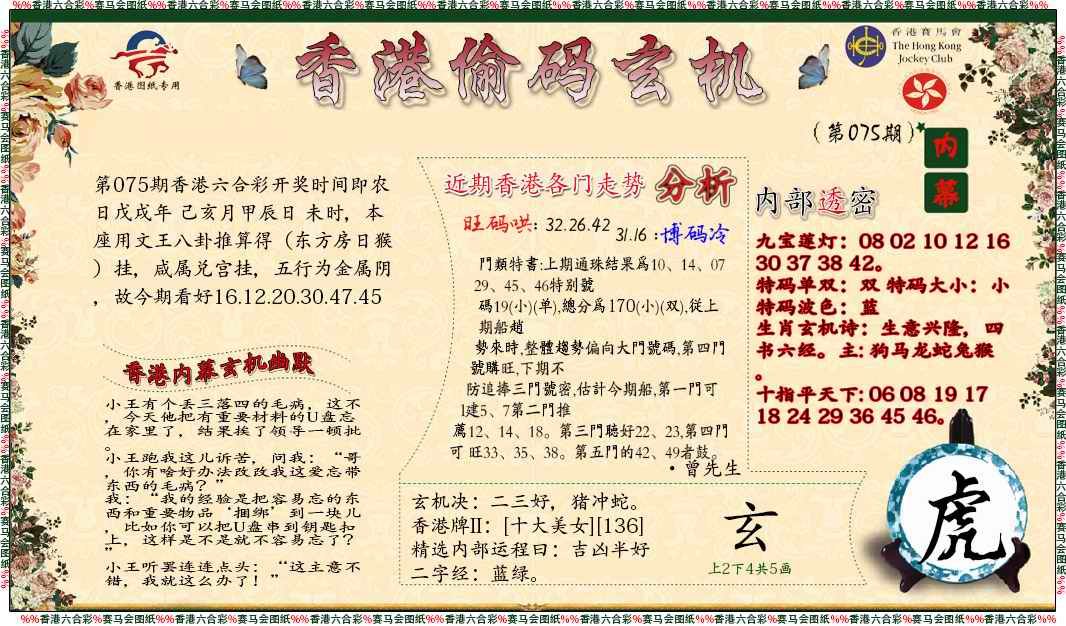 %%香港六合彩%赛马会图纸%%香港六合彩%赛马会图纸%%香港六合彩%赛马会图纸%%香港六合彩%赛马会图纸%%香港六合彩%赛马会图纸%%香港六合彩%%
香港图纸专用
香港偷码玄机
香港賽馬會
The Hong Kong
Jockey Club
(第075期)
内
幕
第075期香港六合彩开奖时间即农
日戊戌年 己亥月甲辰日 未时，本
座用文王八卦推算得（东方房日猴
）挂，咸属兑宫挂，五行为金属阴
，故今期看好16.12.20.30.47.45
香港内幕玄机幽默
小王有个丢三落四的毛病，这不
，今天他把有重要材料的U盘忘
在家里了，结果挨了领导一顿批
。
小王跑我这儿诉苦，问我：“哥
，你有啥好办法改改我这爱忘带
东西的毛病？”
我：“我的经验是把容易忘的东
西和重要物品‘捆绑’到一块儿
，比如你可以把U盘串到钥匙扣
上，这样是不是就不容易忘了？
”
小王听罢连连点头：“这主意不
错，我就这么办了！”
近期香港各门走势 分析
旺码哄: 32.26.42
31.16 :博码冷
門類特書:上期通珠結果爲10、14、07
29、45、46特别號
碼19(小)(单),總分爲170(小)(双),從上
期船趙
勢來時,整體趨勢偏向大門號碼,第四門
號購旺,下期不
防追捧三門號密,估計今期船,第一門可
1建5、7第二門推
薦12、14、18。第三門聽好22、23,第四門
可 旺33、35、38。第五門的42、49者鼓。
·曾先生
内部透密
九宝莲灯：08 02 10 12 16
30 37 38 42。
特码单双：双 特码大小：小
特码波色：蓝
生肖玄机诗：生意兴隆，四
书六经。主: 狗马龙蛇兔猴
。
十指平天下: 06 08 19 17
18 24 29 36 45 46。
玄机决：二三好，猪冲蛇。
香港牌II：[十大美女][136]
精选内部运程曰：吉凶半好
二字经：蓝绿。
玄
上2下4共5画
虎
%%香港六合彩%赛马会图纸%%香港六合彩%赛马会图纸%%香港六合彩%赛马会图纸%%香港六合彩%赛马会图纸%%香港六合彩%赛马会图纸%%香港六合彩%%